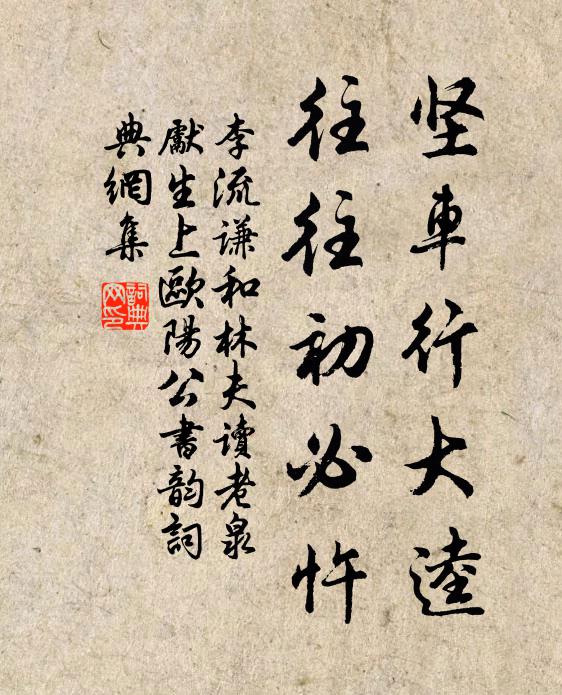 坚車行大逵
往往初必忤
李流謙和林夫讀老泉
獻生上歐陽公書韵詞
典網集
詞典
网印